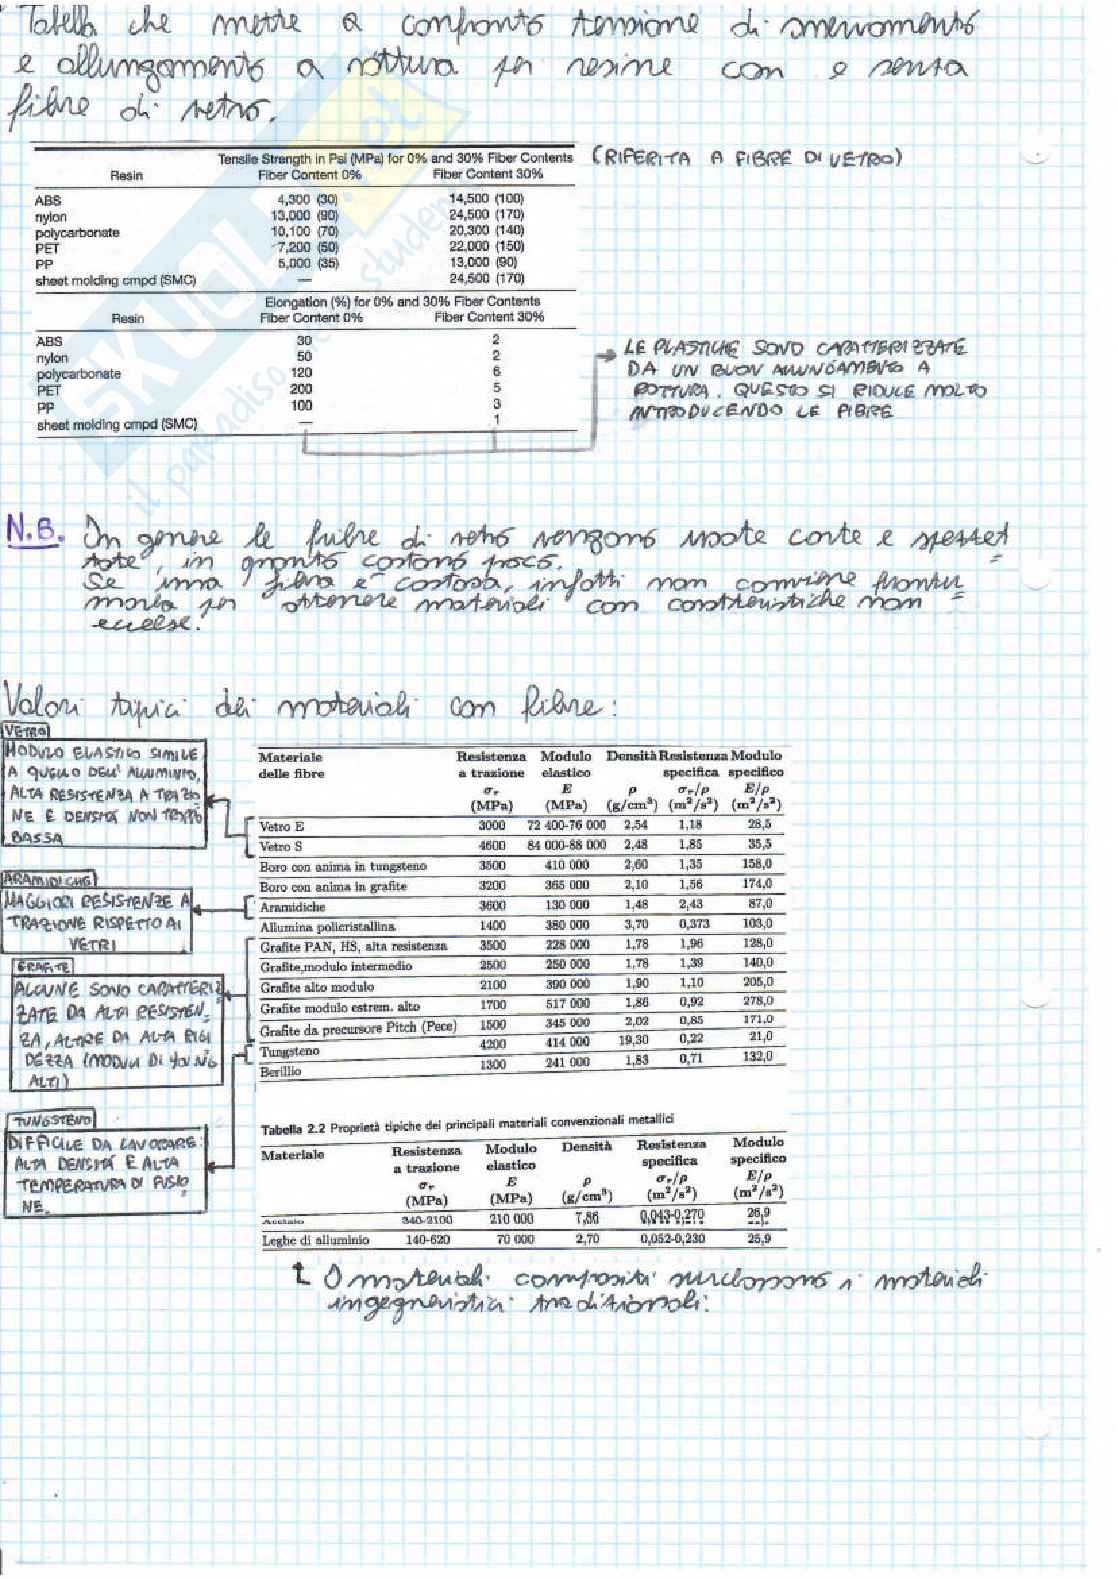 Tabella che mette a confronto tensione di snervamento
e allungamento a rottura per resine con e senza
fibre di vetro.
Tensile Strength in Psi (MPa) for 0% and 30% Fiber Contents (RIFERITA A FIBRE DI VETRO)
Resin Fiber Content 0% Fiber Content 30%
ABS 4,300 (30) 14,500 (100)
nylon 13,000 (90) 24,500 (170)
polycarbonate 10,100 (70) 20,300 (140)
PET 7,200 (50) 22,000 (150)
PP 5,000 (35) 13,000 (90)
sheet molding cmpd (SMC) — 24,500 (170)
Elongation (%) for 0% and 30% Fiber Contents
Resin Fiber Content 0% Fiber Content 30%
ABS 30 2
nylon 50 2
polycarbonate 120 6
PET 200 5
PP 100 3
sheet molding cmpd (SMC) — 1
LE PLASTICHE SONO CARATTERIZZATE
DA UN BUON ALLUNGAMENTO A
ROTTURA. QUESTO SI RIDUCE MOLTO
INTRODUCENDO LE FIBRE
N.B. In genere le fibre di vetro vengono usate corte e spezzet
tate, in quanto costano poco.
Se una fibra è costosa, infatti non conviene frantu
marla per ottenere materiali con caratteristiche non
eccelse.
Valori tipici dei materiali con fibre:
VETRO
MODULO ELASTICO SIMILE
A QUELLO DELL' ALLUMINIO,
ALTA RESISTENZA A TRAZIO
NE E DENSITÁ NON TROPPO
BASSA
ARAMIDICHE
MAGGIORI RESISTENZE A
TRAZIONE RISPETTO AI
VETRI
GRAFITE
ALCUNE SONO CARATTERIZ
ZATE DA ALTA RESISTEN
ZA, ALTRE DA ALTA RIGI
DEZZA (MODULI DI YOUNG
ALTI)
TUNGSTENO
DIFFICILE DA LAVORARE:
ALTA DENSITÁ E ALTA
TEMPERATURA DI FUSIO
NE.
Materiale Resistenza Modulo Densità Resistenza Modulo
delle fibre a trazione elastico specifica specifico
σr E ρ σr/ρ E/ρ
(MPa) (MPa) (g/cm³) (m²/s²) (m²/s²)
Vetro E 3000 72 400-76 000 2,54 1,18 28,5
Vetro S 4600 84 000-88 000 2,48 1,85 35,5
Boro con anima in tungsteno 3500 410 000 2,60 1,35 158,0
Boro con anima in grafite 3200 365 000 2,10 1,56 174,0
Aramidiche 3600 130 000 1,48 2,43 87,0
Allumina policristallina 1400 380 000 3,70 0,373 103,0
Grafite PAN, HS, alta resistenza 3500 228 000 1,78 1,96 128,0
Grafite,modulo intermedio 2500 250 000 1,78 1,39 140,0
Grafite alto modulo 2100 390 000 1,90 1,10 205,0
Grafite modulo estrem. alto 1700 517 000 1,86 0,92 278,0
Grafite da precursore Pitch (Pece) 1500 345 000 2,02 0,85 171,0
Tungsteno 4200 414 000 19,30 0,22 21,0
Berillio 1300 241 000 1,83 0,71 132,0
Tabella 2.2 Proprietà tipiche dei principali materiali convenzionali metallici
Materiale Resistenza Modulo Densità Resistenza Modulo
a trazione elastico specifica specifico
σr E ρ σr/ρ E/ρ
(MPa) (MPa) (g/cm³) (m²/s²) (m²/s²)
Acciaio 340-2100 210 000 7,86 0,043-0,270 26,9
Leghe di alluminio 140-620 70 000 2,70 0,052-0,230 25,9
materiali compositi surclassano i materiali
ingegneristici tradizionali.